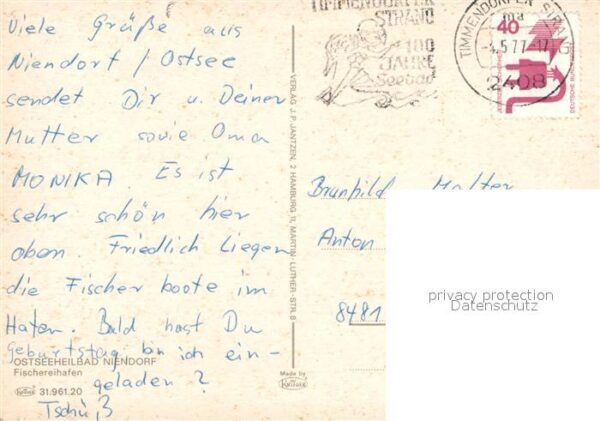 Viele Grüße aus
Niendorf / Ostsee
sendet Dir u. Deiner
Mutter sowie Oma
MONIKA. Es ist
sehr schön hier
oben. Friedlich Liegen
die Fischerboote im
Hafen. Bald hast Du
Geburtstag bin ich ein-
geladen ?
Tschüß
OSTSEEHEILBAD NIENDORF
Fischereihafen
Krüger 31.961.20
VERLAG J. P. JANTZEN, 2 HAMBURG 11, MARTIN-LUTHER-STR. 8
Made by
Krüger
TIMMENDORFER
STRAND
100
JAHRE
Seebad
TIMMENDORFER STRAND
ma
-4.5.77-17
2408
40
Brunhild
Anton
8481
privacy protection
Datenschutz